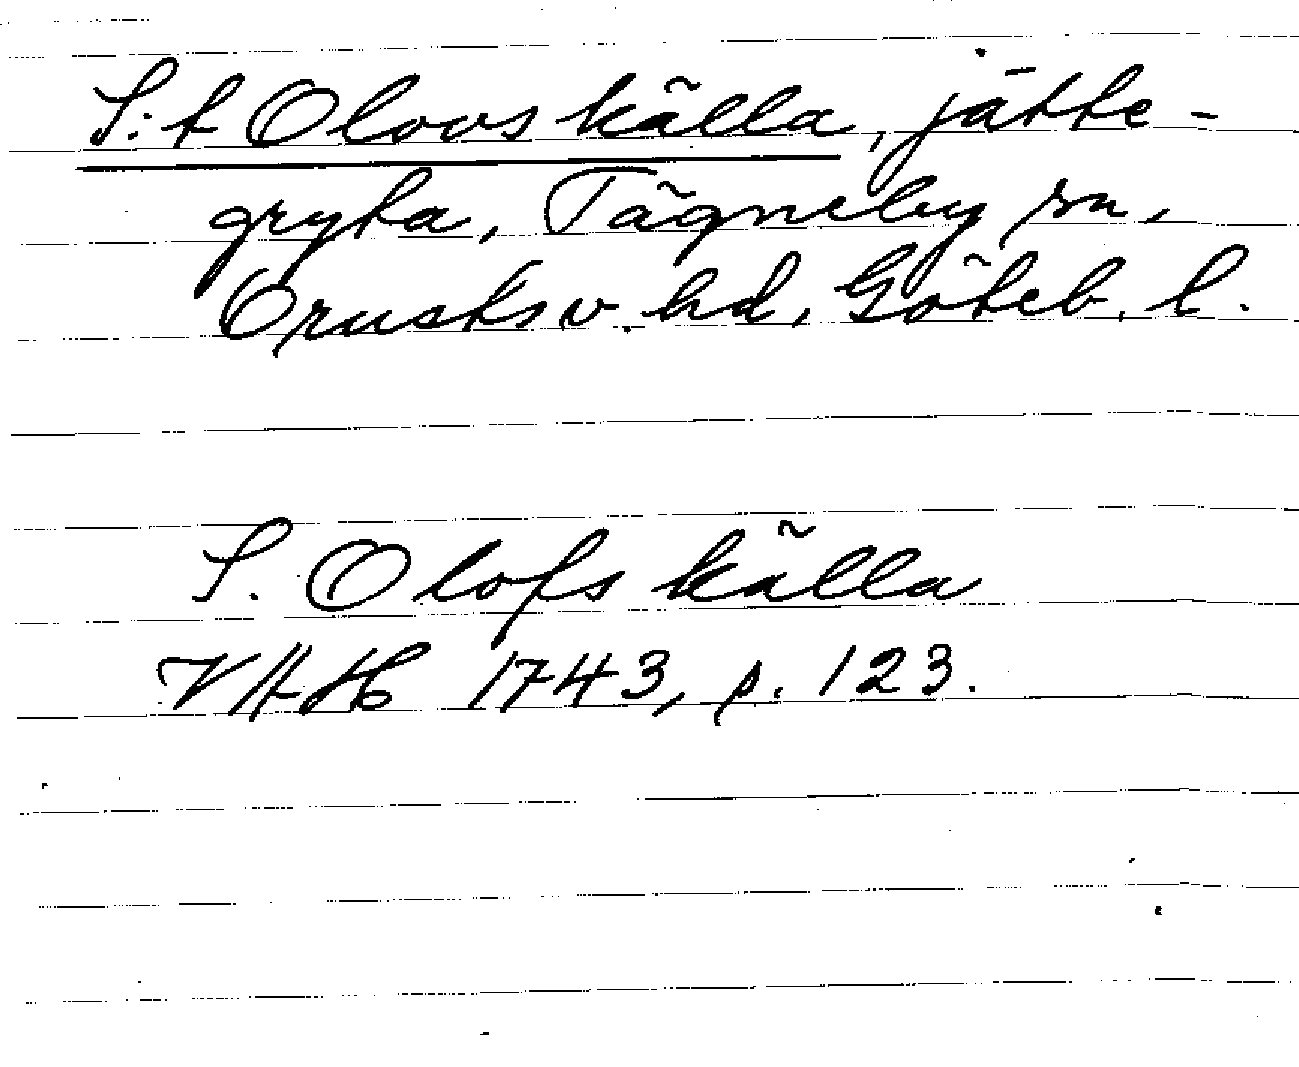 S:t Olovs källa, jätte-
gryta, Tägneby sn,
Orusts v. hd, Göteb. l.
S. Olofs källa
VAH 1743, p. 123.